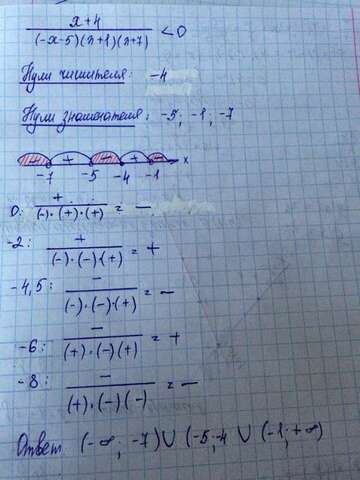 x+4 / (-x-5)(x+1)(x+7) < 0
Нули числителя: -4
Нули знаменателя: -5; -1; -7
- + - + - x
-7 -5 -4 -1
0: + / (-)·(+)·(+) = -
-2: + / (-)·(-)·(+) = +
-4,5: - / (-)·(-)·(+) = -
-6: - / (+)·(-)(+) = +
-8: - / (+)·(-)(-) = -
Ответ (-∞; -7) ∪ (-5;-4 ∪ (-1;+∞)